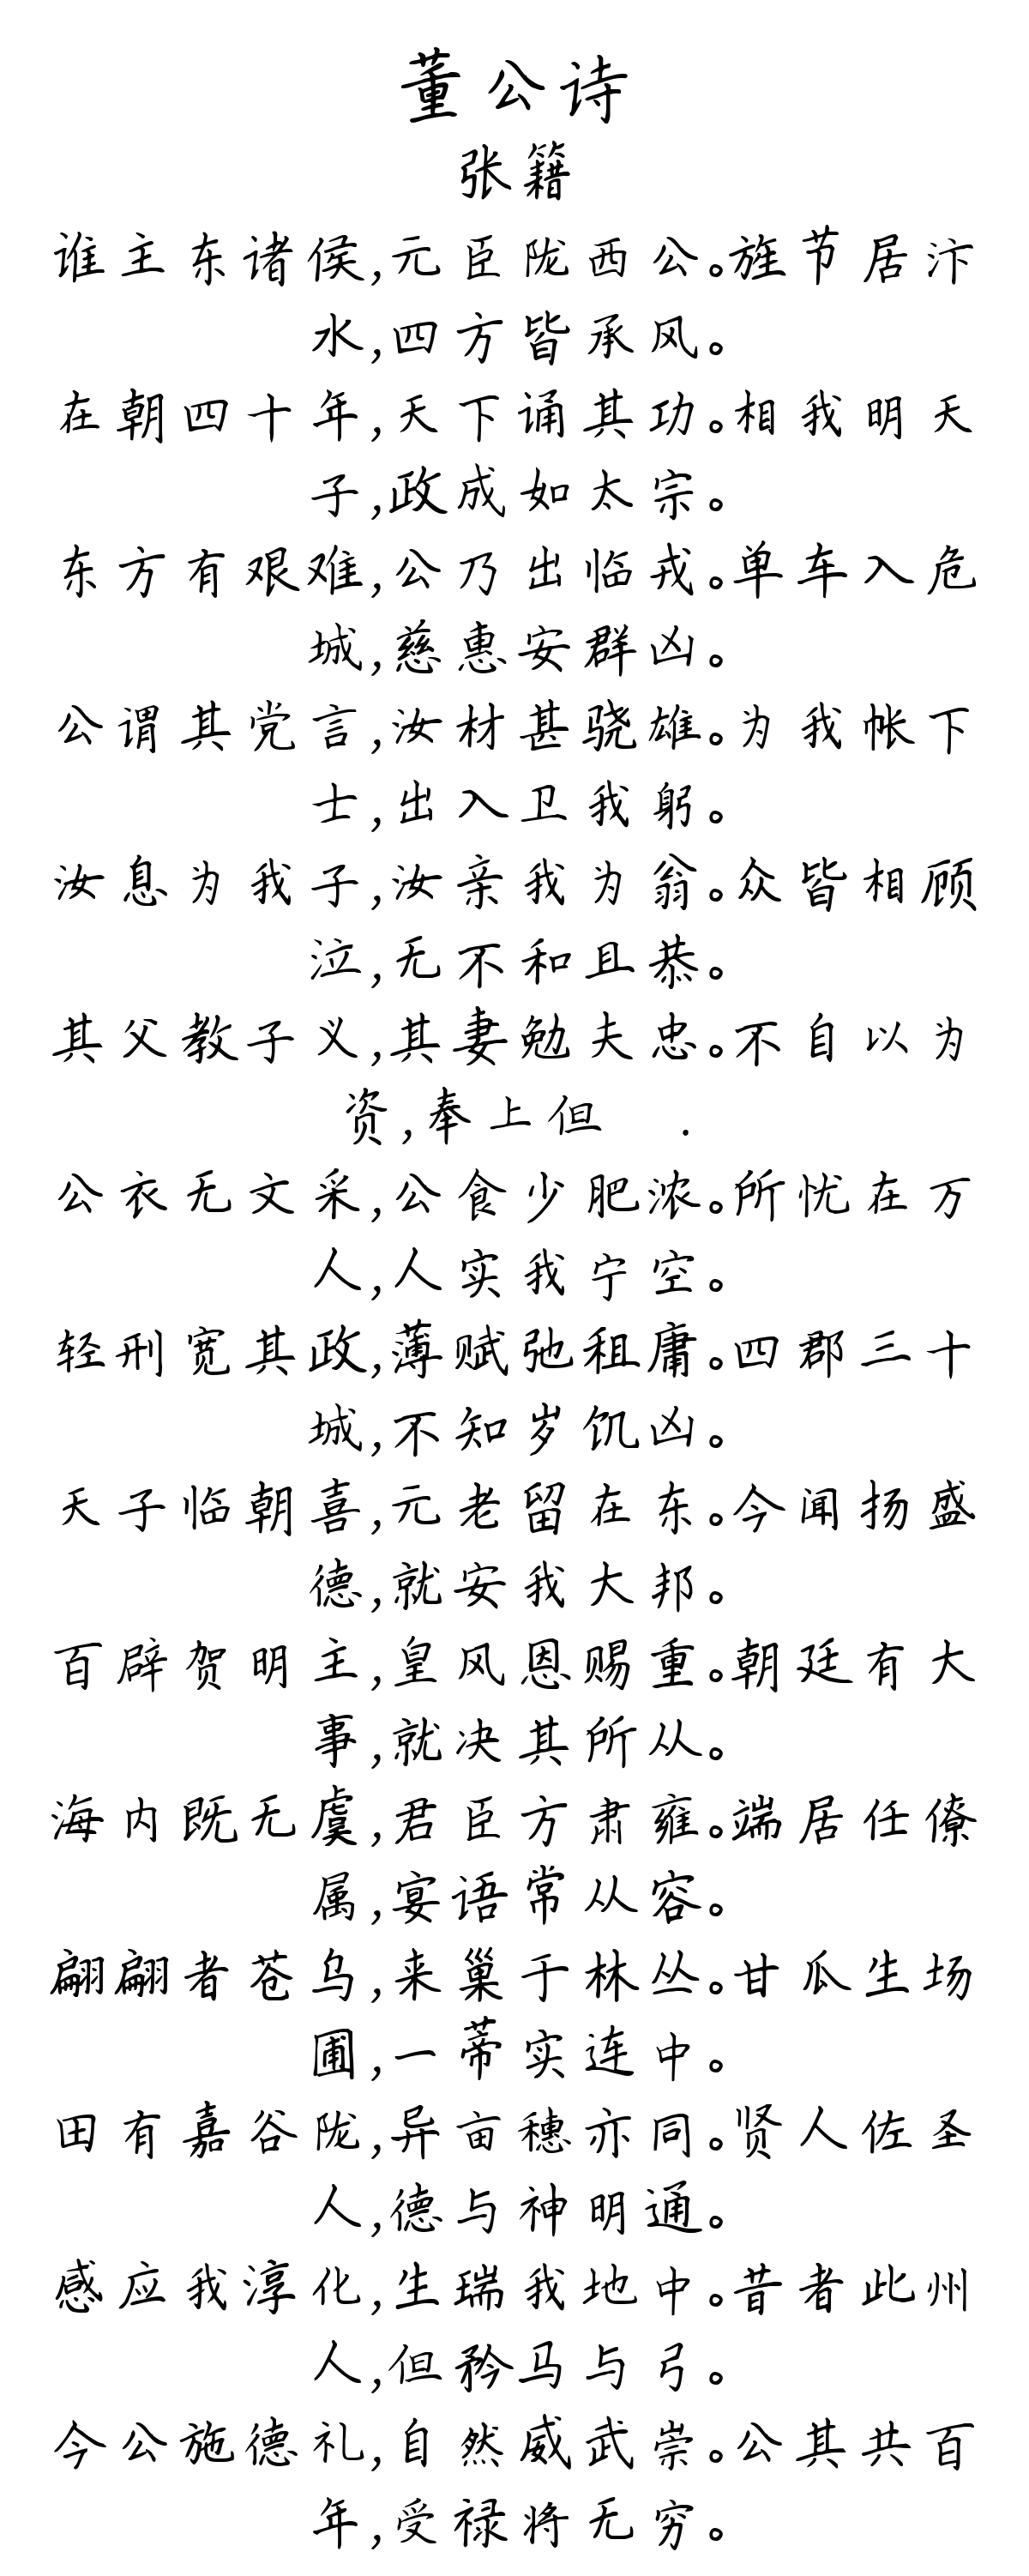 董公诗
张籍
谁主东诸侯,元臣陇西公。旌节居汴
水,四方皆承风。
在朝四十年,天下诵其功。相我明天
子,政成如太宗。
东方有艰难,公乃出临戎。单车入危
城,慈惠安群凶。
公谓其党言,汝材甚骁雄。为我帐下
士,出入卫我躬。
汝息为我子,汝亲我为翁。众皆相顾
泣,无不和且恭。
其父教子义,其妻勉夫忠。不自以为
资,奉上但 .
公衣无文采,公食少肥浓。所忧在万
人,人实我宁空。
轻刑宽其政,薄赋弛租庸。四郡三十
城,不知岁饥凶。
天子临朝喜,元老留在东。今闻扬盛
德,就安我大邦。
百辟贺明主,皇风恩赐重。朝廷有大
事,就决其所从。
海内既无虞,君臣方肃雍。端居任僚
属,宴语常从容。
翩翩者苍乌,来巢于林丛。甘瓜生场
圃,一蒂实连中。
田有嘉谷陇,异亩穗亦同。贤人佐圣
人,德与神明通。
感应我淳化,生瑞我地中。昔者此州
人,但矜马与弓。
今公施德礼,自然威武崇。公其共百
年,受禄将无穷。